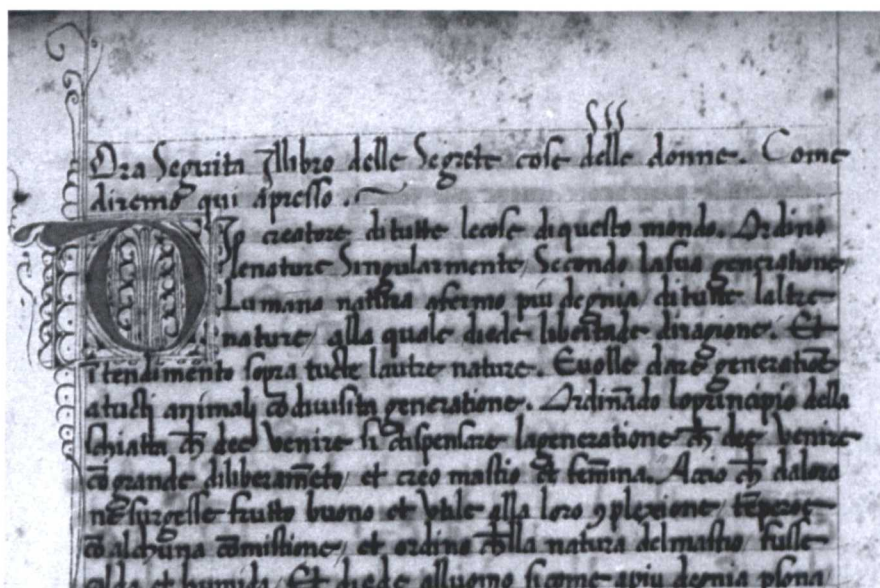 Ora Seguita Jllibro delle Segrete cose delle donne. Come
diremo qui apresso.
DJo creatore di tutte lecose diquesto mondo. Ordino
lenature Singularmente, Secondo lasua generatione,
Lumana natura afermo piu degnia, di tutte laltre
nature, alla quale diede libertade diragione. Et
ītendimento sopra tucte lautre nature. Euolle dare generatiōe
atucti animali cō diuisita generatione. Ordinādo loprincipio della
schiatta ch̄ dee Venire si dispensare lageneratione ch̄ dee Venire
cō grande diliberamēto, et creo mastio et femina. Acio ch̄ daloro
ne surgesse frutto buono et Vtile alla loro ꝯplexione,
cō alchuna cōmistione, et ordino ch̄lla natura delmastio, fusse
calda et humida, Et diede alluomo sicome apiu degnia